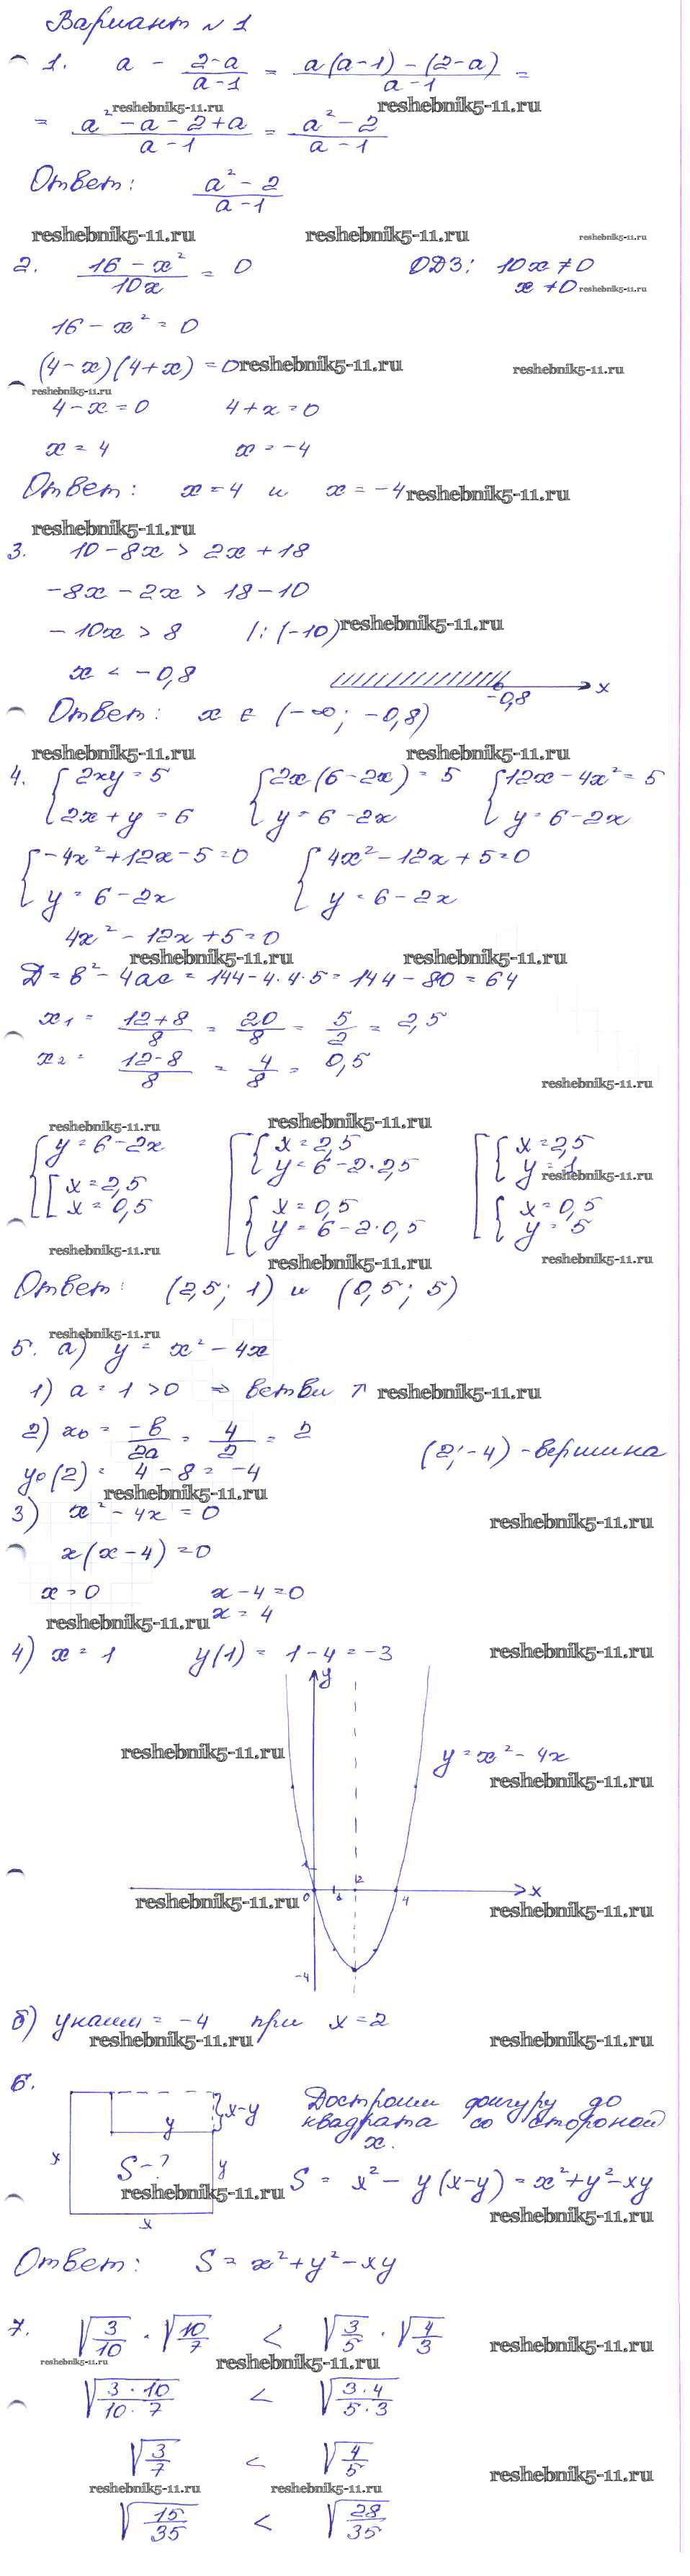 Вариант №1
1. a - (2-a)/(a-1) = (a(a-1) - (2-a))/(a-1) =
reshebnik5-11.ru reshebnik5-11.ru
= (a² - a - 2 + a)/(a-1) = (a² - 2)/(a-1)
Ответ: (a² - 2)/(a-1)
reshebnik5-11.ru reshebnik5-11.ru reshebnik5-11.ru
2. (16 - x²)/(10x) = 0 ОДЗ: 10x ≠ 0
x ≠ 0 reshebnik5-11.ru
16 - x² = 0
(4-x)(4+x) = 0 reshebnik5-11.ru reshebnik5-11.ru
reshebnik5-11.ru
4-x=0 4+x=0
x = 4 x = -4
Ответ: x=4 и x=-4 reshebnik5-11.ru
reshebnik5-11.ru
3. 10-8x > 2x+18
-8x - 2x > 18-10
-10x > 8 |:(-10) reshebnik5-11.ru
x < -0,8
-0,8 x
Ответ: x ∈ (-∞; -0,8)
reshebnik5-11.ru reshebnik5-11.ru
4. { 2xy = 5 { 2x(6-2x) = 5 { 12x-4x² = 5
2x+y = 6 y = 6-2x y = 6-2x
{ -4x²+12x-5=0 { 4x²-12x+5=0
y = 6-2x y = 6-2x
4x²-12x+5=0
reshebnik5-11.ru reshebnik5-11.ru
Д = в²-4ac = 144-4·4·5 = 144-80 = 64
x₁ = (12+8)/8 = 20/8 = 5/2 = 2,5
x₂ = (12-8)/8 = 4/8 = 0,5
reshebnik5-11.ru
reshebnik5-11.ru reshebnik5-11.ru
{ y=6-2x [ { x=2,5 [ { x=2,5
y=6-2·2,5 y=1
[ x=2,5 reshebnik5-11.ru
x=0,5 { x=0,5 { x=0,5
y=6-2·0,5 y=5
reshebnik5-11.ru reshebnik5-11.ru reshebnik5-11.ru
Ответ: (2,5; 1) и (0,5; 5)
reshebnik5-11.ru
5. а) y = x²-4x
1) a=1>0 ⇒ ветви ↑ reshebnik5-11.ru
2) x₀ = -в/2a = 4/2 = 2
(2;-4) - вершина
y₀(2) = 4-8 = -4
reshebnik5-11.ru
3) x²-4x = 0
reshebnik5-11.ru
x(x-4)=0
x=0 x-4=0
reshebnik5-11.ru x=4
4) x=1 y(1) = 1-4 = -3 reshebnik5-11.ru
y
reshebnik5-11.ru y=x²-4x
reshebnik5-11.ru
1
2
0 1 4 x
reshebnik5-11.ru reshebnik5-11.ru
-4
б) yнаим = -4 при x=2
reshebnik5-11.ru reshebnik5-11.ru
6.
x-y Достроим фигуру до
y квадрата со стороной
x.
x S-? y
S = x²-y(x-y) = x²+y²-xy
reshebnik5-11.ru
reshebnik5-11.ru
x
Ответ: S = x²+y²-xy
7. √(3/10) · √(10/7) < √(3/5) · √(4/3) reshebnik5-11.ru
reshebnik5-11.ru reshebnik5-11.ru
√((3·10)/(10·7)) < √((3·4)/(5·3))
√(3/7) < √(4/5) reshebnik5-11.ru
reshebnik5-11.ru reshebnik5-11.ru
√(15/35) < √(28/35)